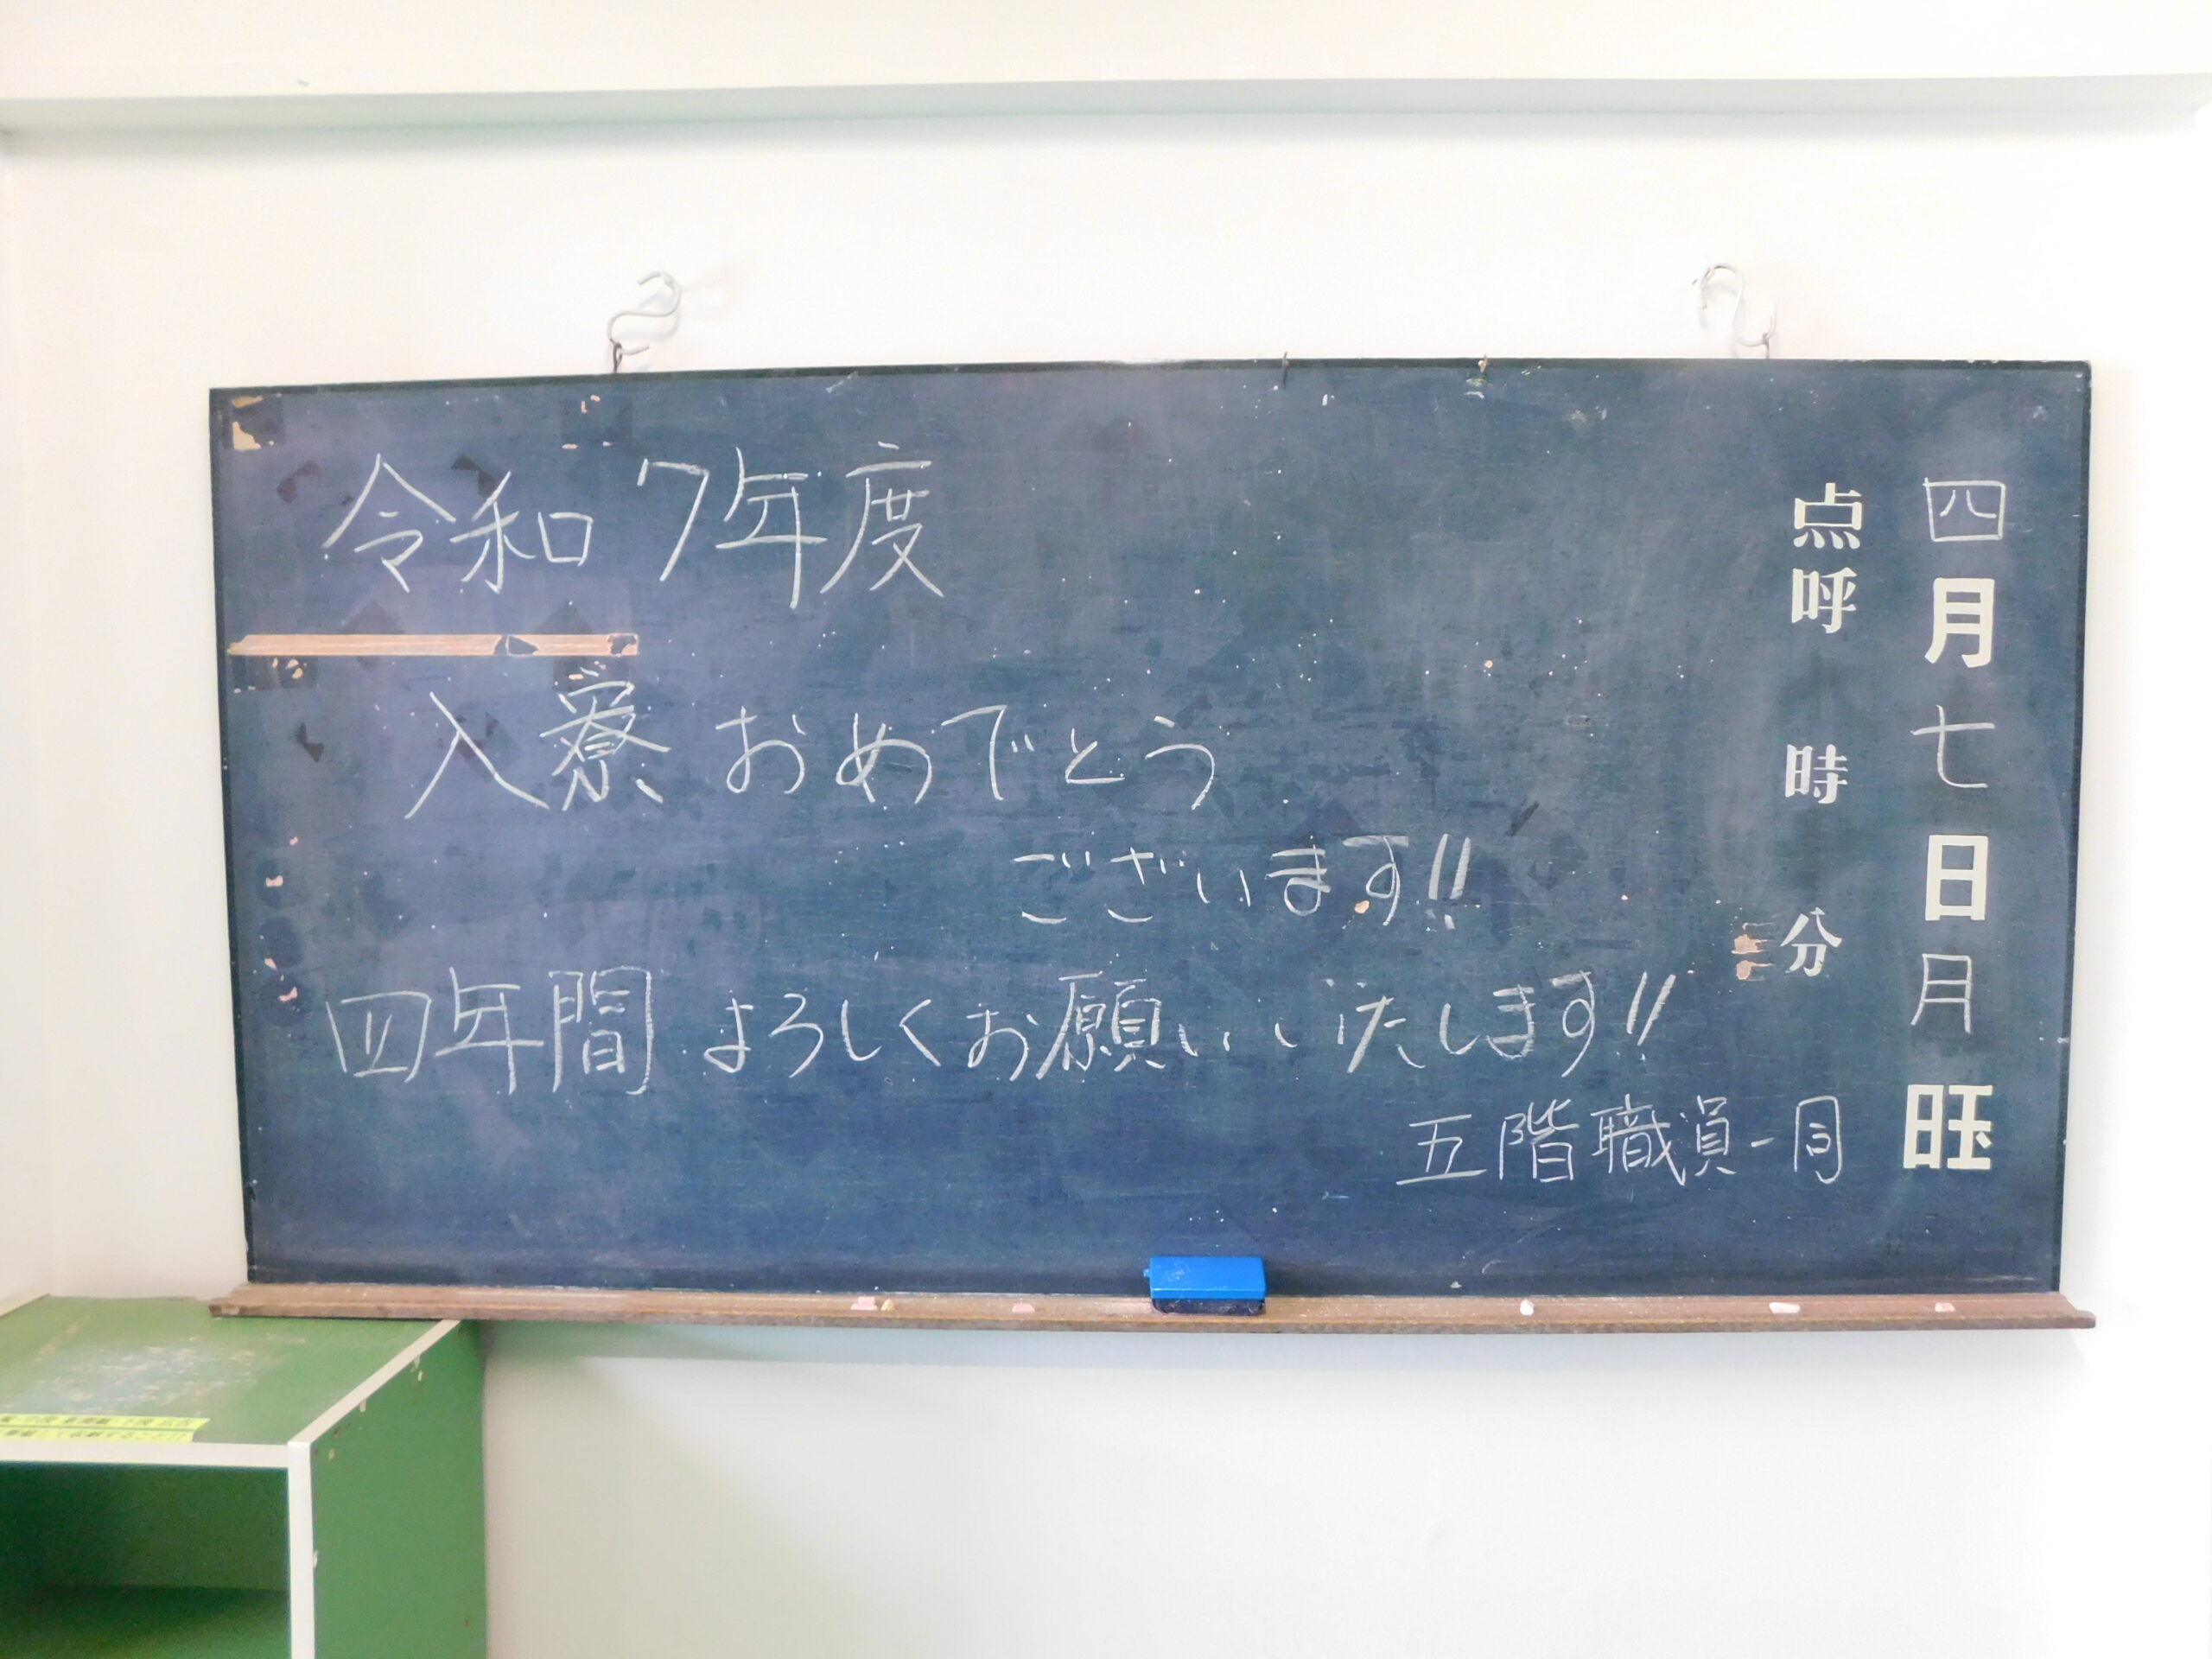 令和7年度
入寮おめでとう
ございます!!
四年間よろしくお願い致します!!
五階職員一同
四月七日月旺
点呼 時 分